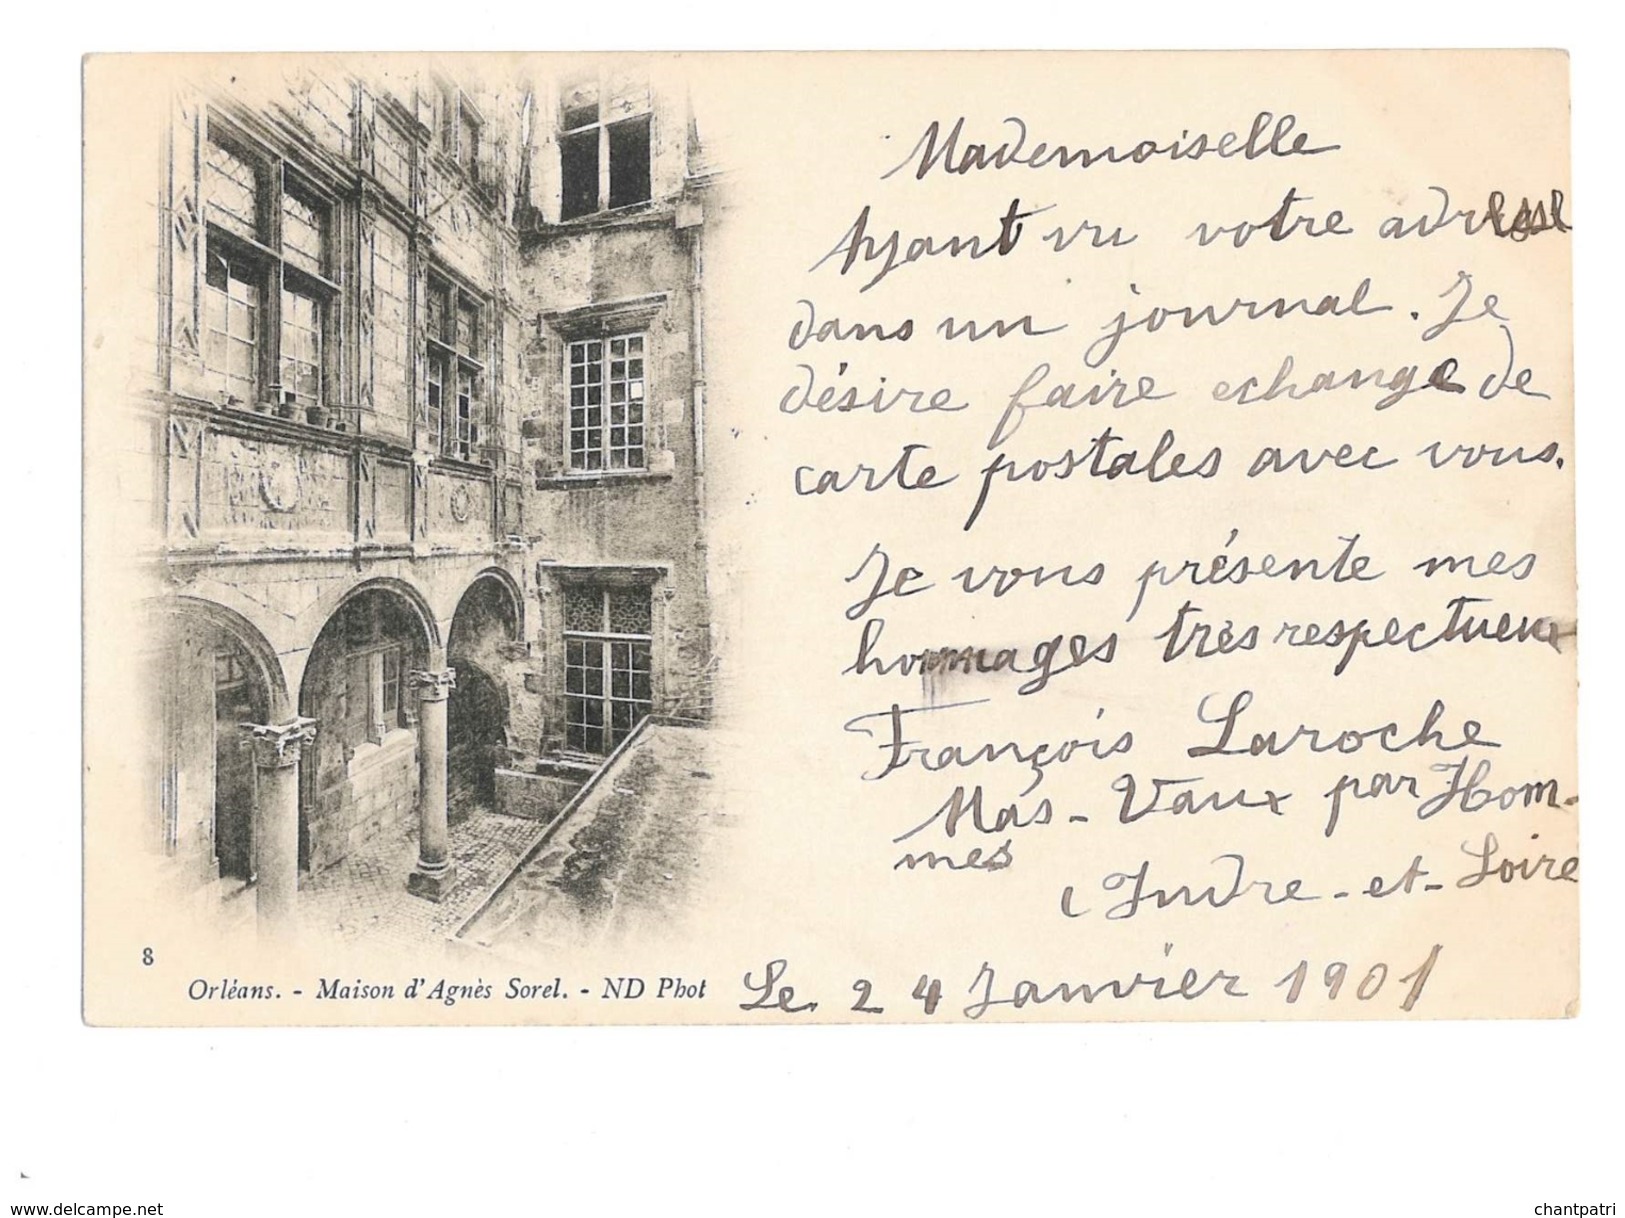 Mademoiselle
Ayant vu votre adresse
dans un journal. Je
désire faire echange de
carte postales avec vous.
Je vous présente mes
hommages très respectueux
François Laroche
Mas-Vaux par Hom-
mes
(Indre-et-Loire
Le 24 Janvier 1901
8
Orléans. - Maison d'Agnès Sorel. - ND Phot
www.delcampe.net
chantpatri